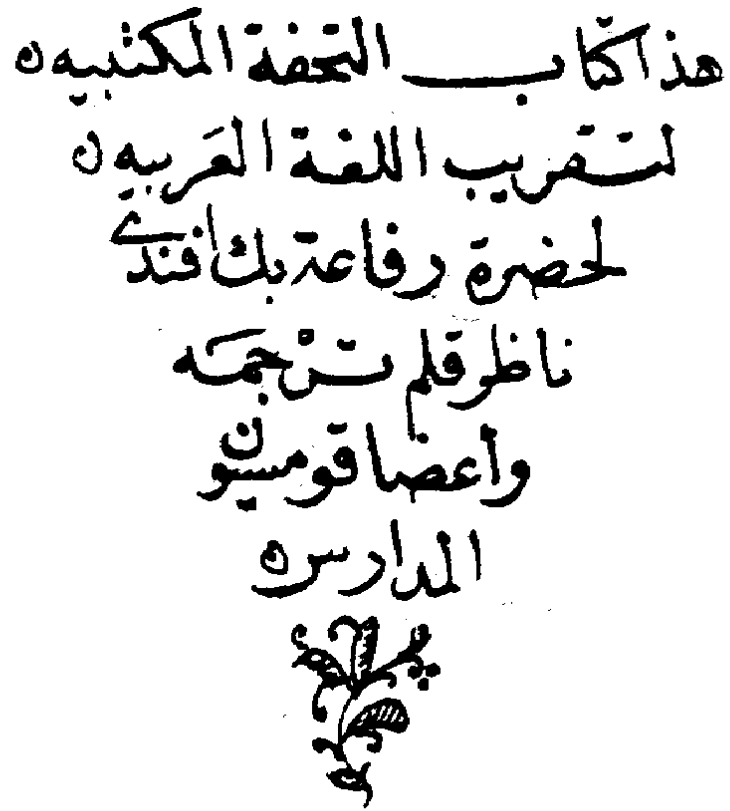 هذا كتاب التحفة المكتبيه
لتقريب اللغة العَربيه
لحضرة رفاعة بك افندى
ناظر قلم ترْجمَه
وأعضا قومسيون
المدارس